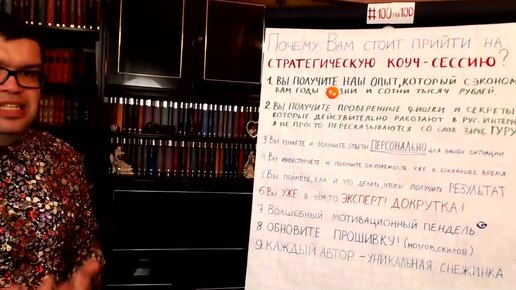 #100по100
Почему Вам стоит прийти на
СТРАТЕГИЧЕСКУЮ КОУЧ-СЕССИЮ?
1. ВЫ ПОЛУЧИТЕ НАШ ОПЫТ, КОТОРЫЙ СЭКОНОМ
ВАМ ГОДЫ ЗНИ И СОТНИ ТЫСЯЧ РУБЛЕЙ.
2 ВЫ ПОЛУЧИТЕ ПРОВЕРЕННЫЕ ФИШКИ И СЕКРЕТЫ
КОТОРЫЕ ДЕЙСТВИТЕЛЬНО РАБОТАЮТ В РУС. ИНТЕРН
А НЕ ПРОСТО ПЕРЕСКАЗЫВАЮТСЯ СО СЛОВ ЗАРУБ. ГУРУ
3 ВЫ УЗНАЕТЕ И ПОЛУЧИТЕ ОТВЕТЫ ПЕРСОНАЛЬНО ДЛЯ ВАШЕЙ СИТУАЦИИ
4 ВЫ ИНВЕСТИРУЕТЕ И ПОЛУЧИТЕ ОКУПАЕМОСТЬ УЖЕ В БЛИЖАЙШЕЕ ВРЕМЯ
5 ВЫ ПОЙМЁТЕ, КАК И ЧТО ДЕЛАТЬ, ЧТОБЫ ПОЛУЧИТЬ РЕЗУЛЬТАТ
6 ВЫ УЖЕ В ЧЁМ-ТО ЭКСПЕРТ! ДОКРУТКА!
7 ВОЛШЕБНЫЙ МОТИВАЦИОННЫЙ ПЕНДЕЛЬ
8 ОБНОВИТЕ ПРОШИВКУ! (МОЗГОВ, СКИЛОВ)
9. КАЖДЫЙ АВТОР - УНИКАЛЬНАЯ СНЕЖИНКА